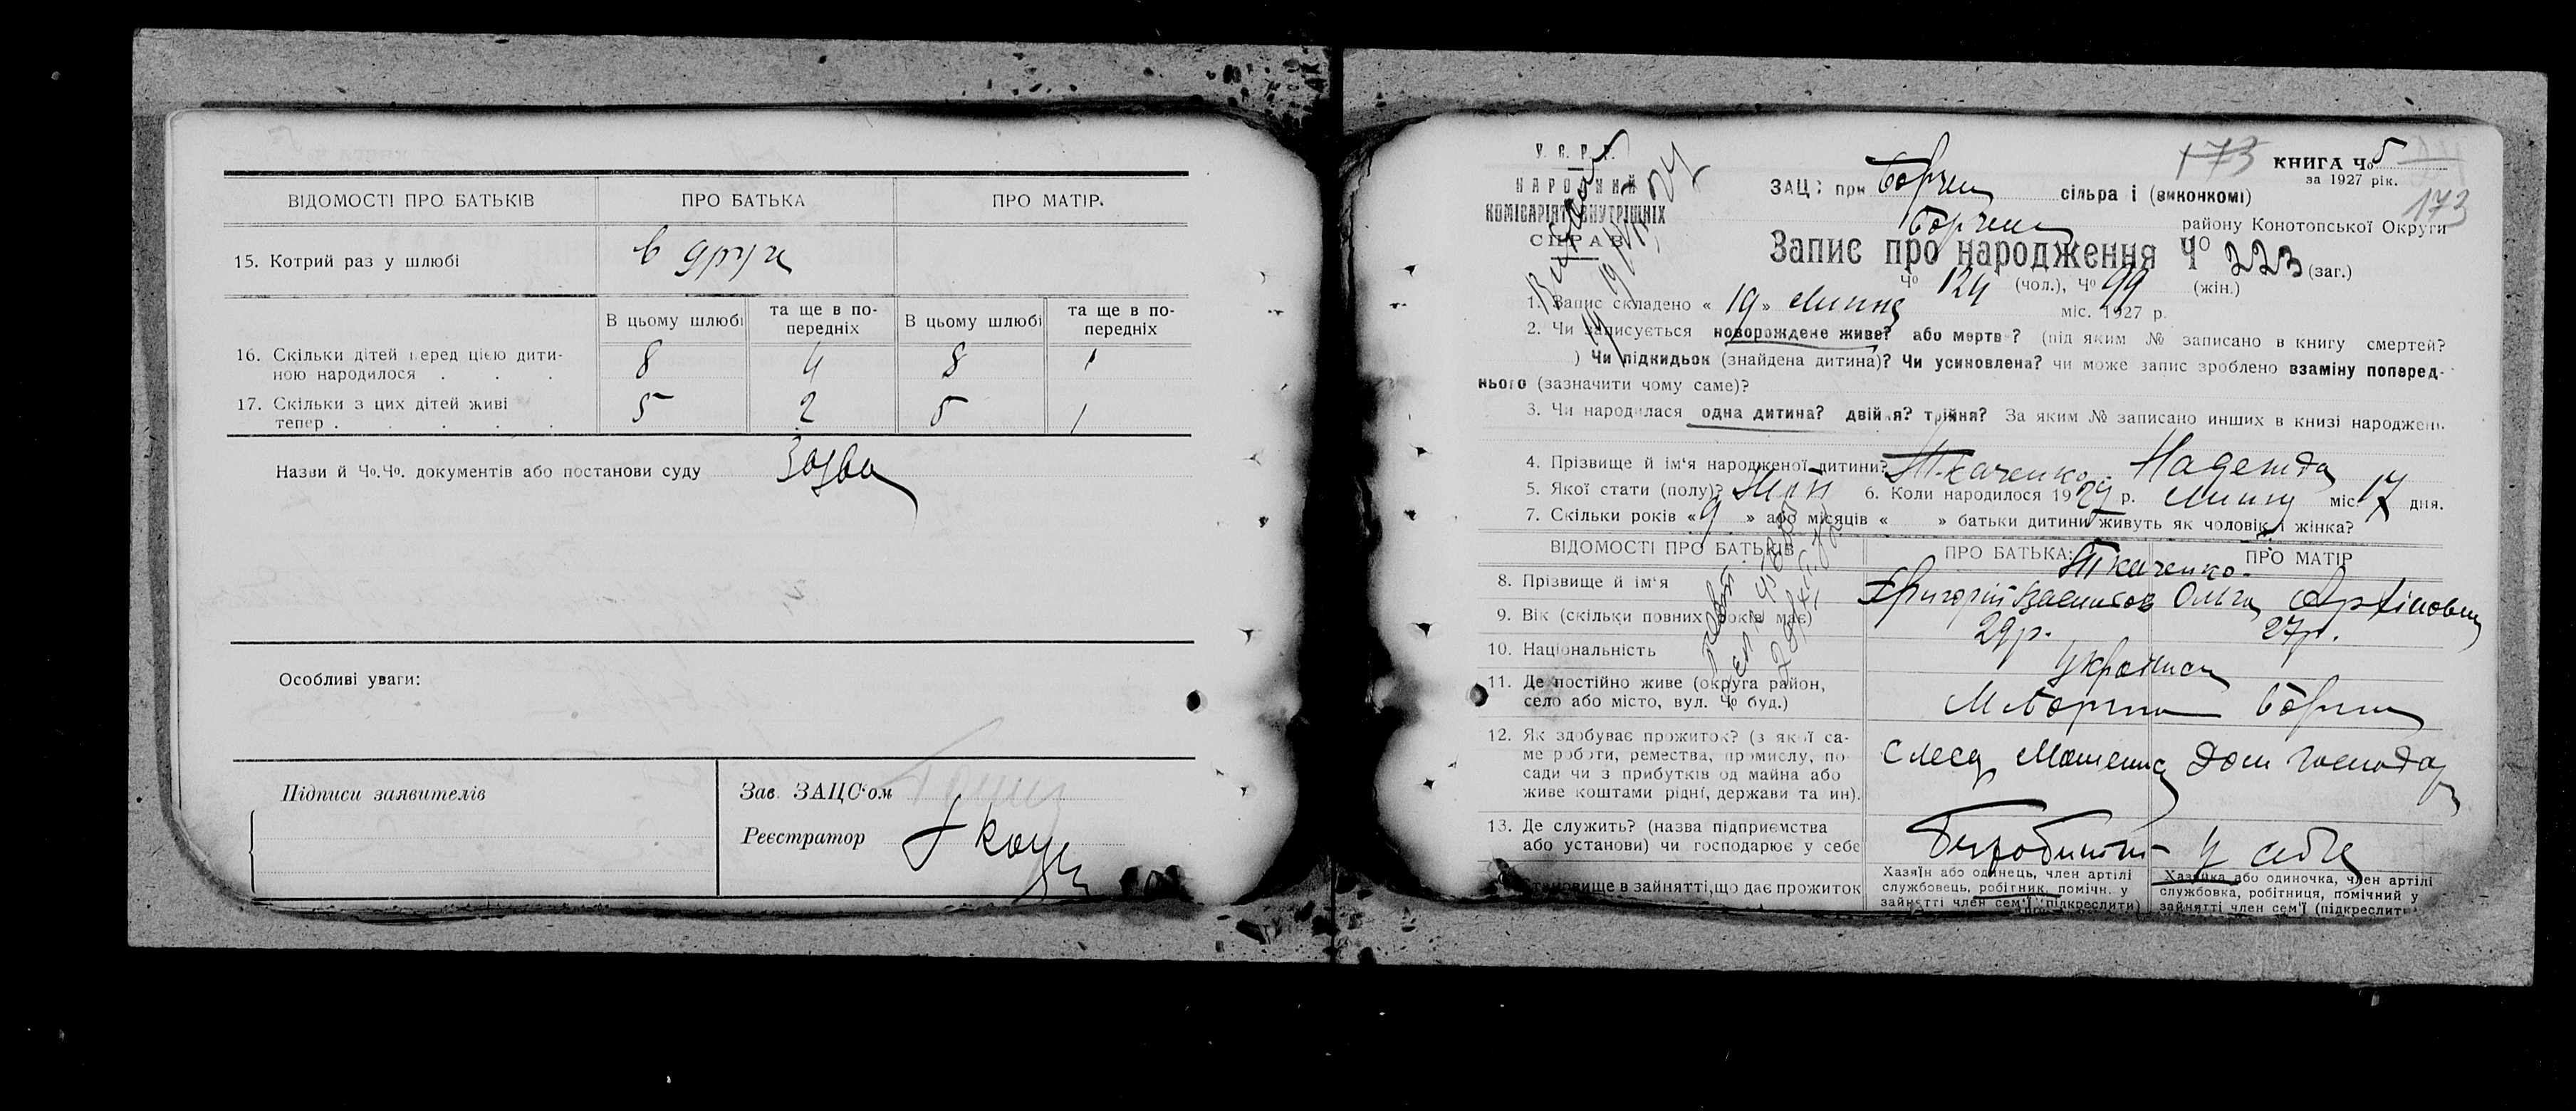 ВІДОМОСТІ ПРО БАТЬКІВ
ПРО БАТЬКА
ПРО МАТІР.
15. Котрий раз у шлюбі
в друге
В цьому шлюбі
та ще в по-
передніх
В цьому шлюбі
та ще в по-
передніх
16. Скільки дітей перед цією дити-
ною народилося . . .
8 4 8 1
17. Скільки з цих дітей живі
тепер . . . . .
5 2 5 1
Назви й Ч°.Ч°. документів або постанови суду
Заява
Особливі уваги:
Підписи заявителів
Зав. ЗАЦС'ом
Реєстратор
У. С. Р. Р.
НАРОДНИЙ
КОМІСАРІЯТ ВНУТРІШНІХ
СПРАВ
173
КНИГА Ч° 5
за 1927 рік.
173
ЗАЦС при Борзен сільраді (виконкомі)
Борзен району Конотопської Округи
Запис про народження Ч° 223 (заг.)
Ч° 124 (чол.), Ч° 99 (жін.)
1. Запис складено « 19 » липня міс. 1927 р.
2. Чи записується новорождене живе? або мертве? (під яким № записано в книгу смертей?
) Чи підкидьок (знайдена дитина)? Чи усиновлена? чи може запис зроблено взаміну поперед-
нього (зазначити чому саме)?
3. Чи народилася одна дитина? двійня? трійня? За яким № записано инших в книзі народжень
4. Прізвище й ім'я народженої дитини? Ткаченко Надежда
5. Якої стати (полу)? Жін 6. Коли народилося 1929 р. липня міс. 17 дня.
7. Скільки років « 9 » або місяців « » батьки дитини живуть як чоловік і жінка?
ВІДОМОСТІ ПРО БАТЬКІВ
ПРО БАТЬКА:
ПРО МАТІР
8. Прізвище й ім'я
Ткаченко
Григорій Васильов Ольга
9. Вік (скільки повних років має)
29 р. 27 р.
10. Національність
Українці
11. Де постійно живе (округа район,
село або місто, вул. Ч° буд.)
М Борзна Борзен
12. Як здобуває прожиток? (з якої са-
ме роботи, ремества, промислу, по-
сади чи з прибутків од майна або
живе коштами рідні, держави та ин).
Слесар Дом господар
13. Де служить? (назва підприємства
або установи) чи господарює у себе
Безробітній у себе
Становище в зайнятті, що дає прожиток
Хазяїн або одинець, член артілі
службовець, робітник, помічн. у
зайнятті член сем'ї (підкреслити)
Хазяйка або одиночка, член артілі
службовка, робітниця, помічний у
зайнятті член сем'ї (підкреслити)